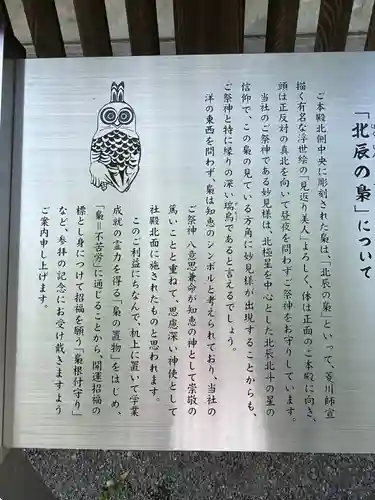 「北辰の梟」について
ご本殿北側中央に彫刻された梟は、「北辰の梟」といって、菱川師宣
描く有名な浮世絵の「見返り美人」よろしく、体は正面のご本殿に向き、
頭は正反対の真北を向いて昼夜を問わずご祭神をお守りしています。
当社のご祭神である妙見様は、北極星を中心とした北辰北斗の星の
信仰で、この梟の見ている方角に妙見様が出現することからも、
ご祭神と特に縁りの深い瑞鳥であると言えるでしょう。
洋の東西を問わず、梟は知恵のシンボルと考えられており、当社の
ご祭神 八意思兼命が知恵の神として崇敬の
篤いことと重ねて、思慮深い神使として
社殿北面に施されたものと思われます。
このご利益にちなんで、机上に置いて学業
成就の霊力を得る「梟の置物」をはじめ、
「梟=不苦労」に通じることから、開運招福の
標とし身につけて招福を願う「梟根付守り」
など、参拝の記念にお受け戴きますよう
ご案内申し上げます。